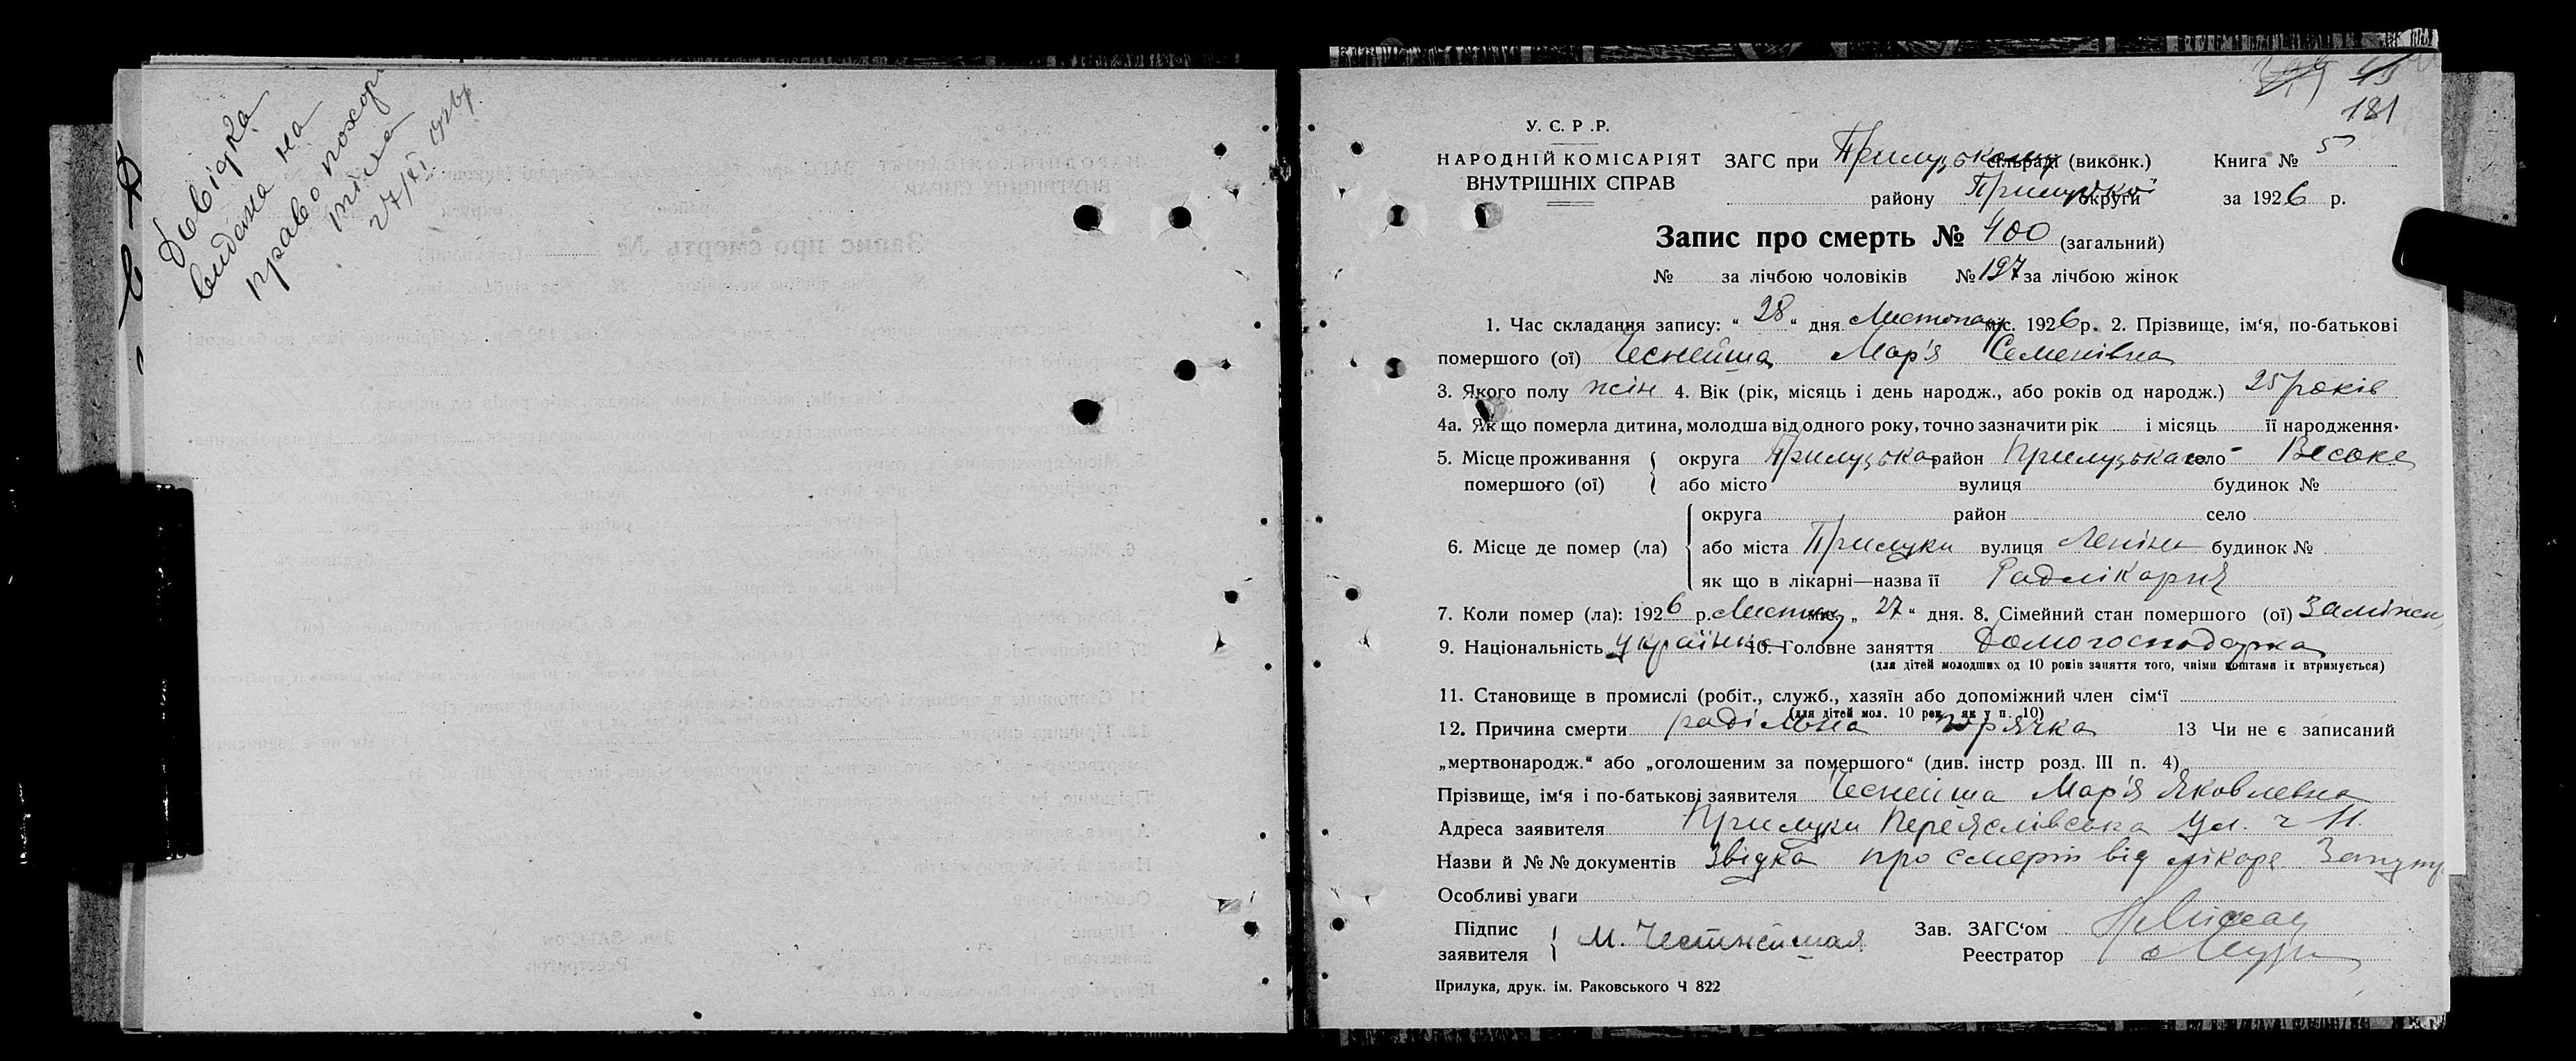 Довідка
видана на
право похор
тіла
27/XI
181
У. С. Р .Р.
НАРОДНІЙ КОМІСАРІЯТ
ВНУТРІШНІХ СПРАВ
ЗАГС при Прилуцькому сільраді (виконк.) Книга № 5
району Прилуцької округи за 1926 р.
Запис про смерть № 400 (загальний)
№ за лічбою чоловіків № 197 за лічбою жінок
1. Час складання запису: " 28 " дня Листопад міс. 1926 р. 2. Прізвище, ім'я, по-батькові
помершого (ої) Чеснейша Мар'я Семенівна
3. Якого полу жін 4. Вік (рік, місяць і день народж., або років од народж.) 25 років
4а. Як що померла дитина, молодша від одного року, точно зазначити рік і місяць її народження.
5. Місце проживання помершого (ої) округа Прилуцька район Прилуцька село Високе
або місто вулиця будинок №
6. Місце де помер (ла) округа район село
або міста Прилуки вулиця Леніна будинок №
як що в лікарні—назва її Радлікарня
7. Коли помер (ла): 1926 р. Листоп міс. „ 27 " дня. 8. Сімейний стан помершого (ої) Заміжн
9. Національність українка 10. Головне заняття Домогосподарка
(для дітей молодших од 10 років заняття того, чиїми коштами їх втримується)
11. Становище в промислі (робіт., служб., хазяїн або допоміжний член сім'ї
(для дітей мол. 10 рок. як у п. 10)
12. Причина смерти родільна горячка 13 Чи не є записаний
„мертвонародж." або „оголошеним за помершого" (див. інстр розд. III п. 4)
Прізвище, ім'я і по-батькові заявителя Чеснейша Мар'я Яковлевна
Адреса заявителя Прилуки Переяслівська ул. ч 11.
Назви й №№ документів Звідка про смерть від лікаря
Особливі уваги
Підпис заявителя М. Честнейшая
Зав. ЗАГС'ом
Реєстратор
Прилука, друк. ім. Раковського Ч 822